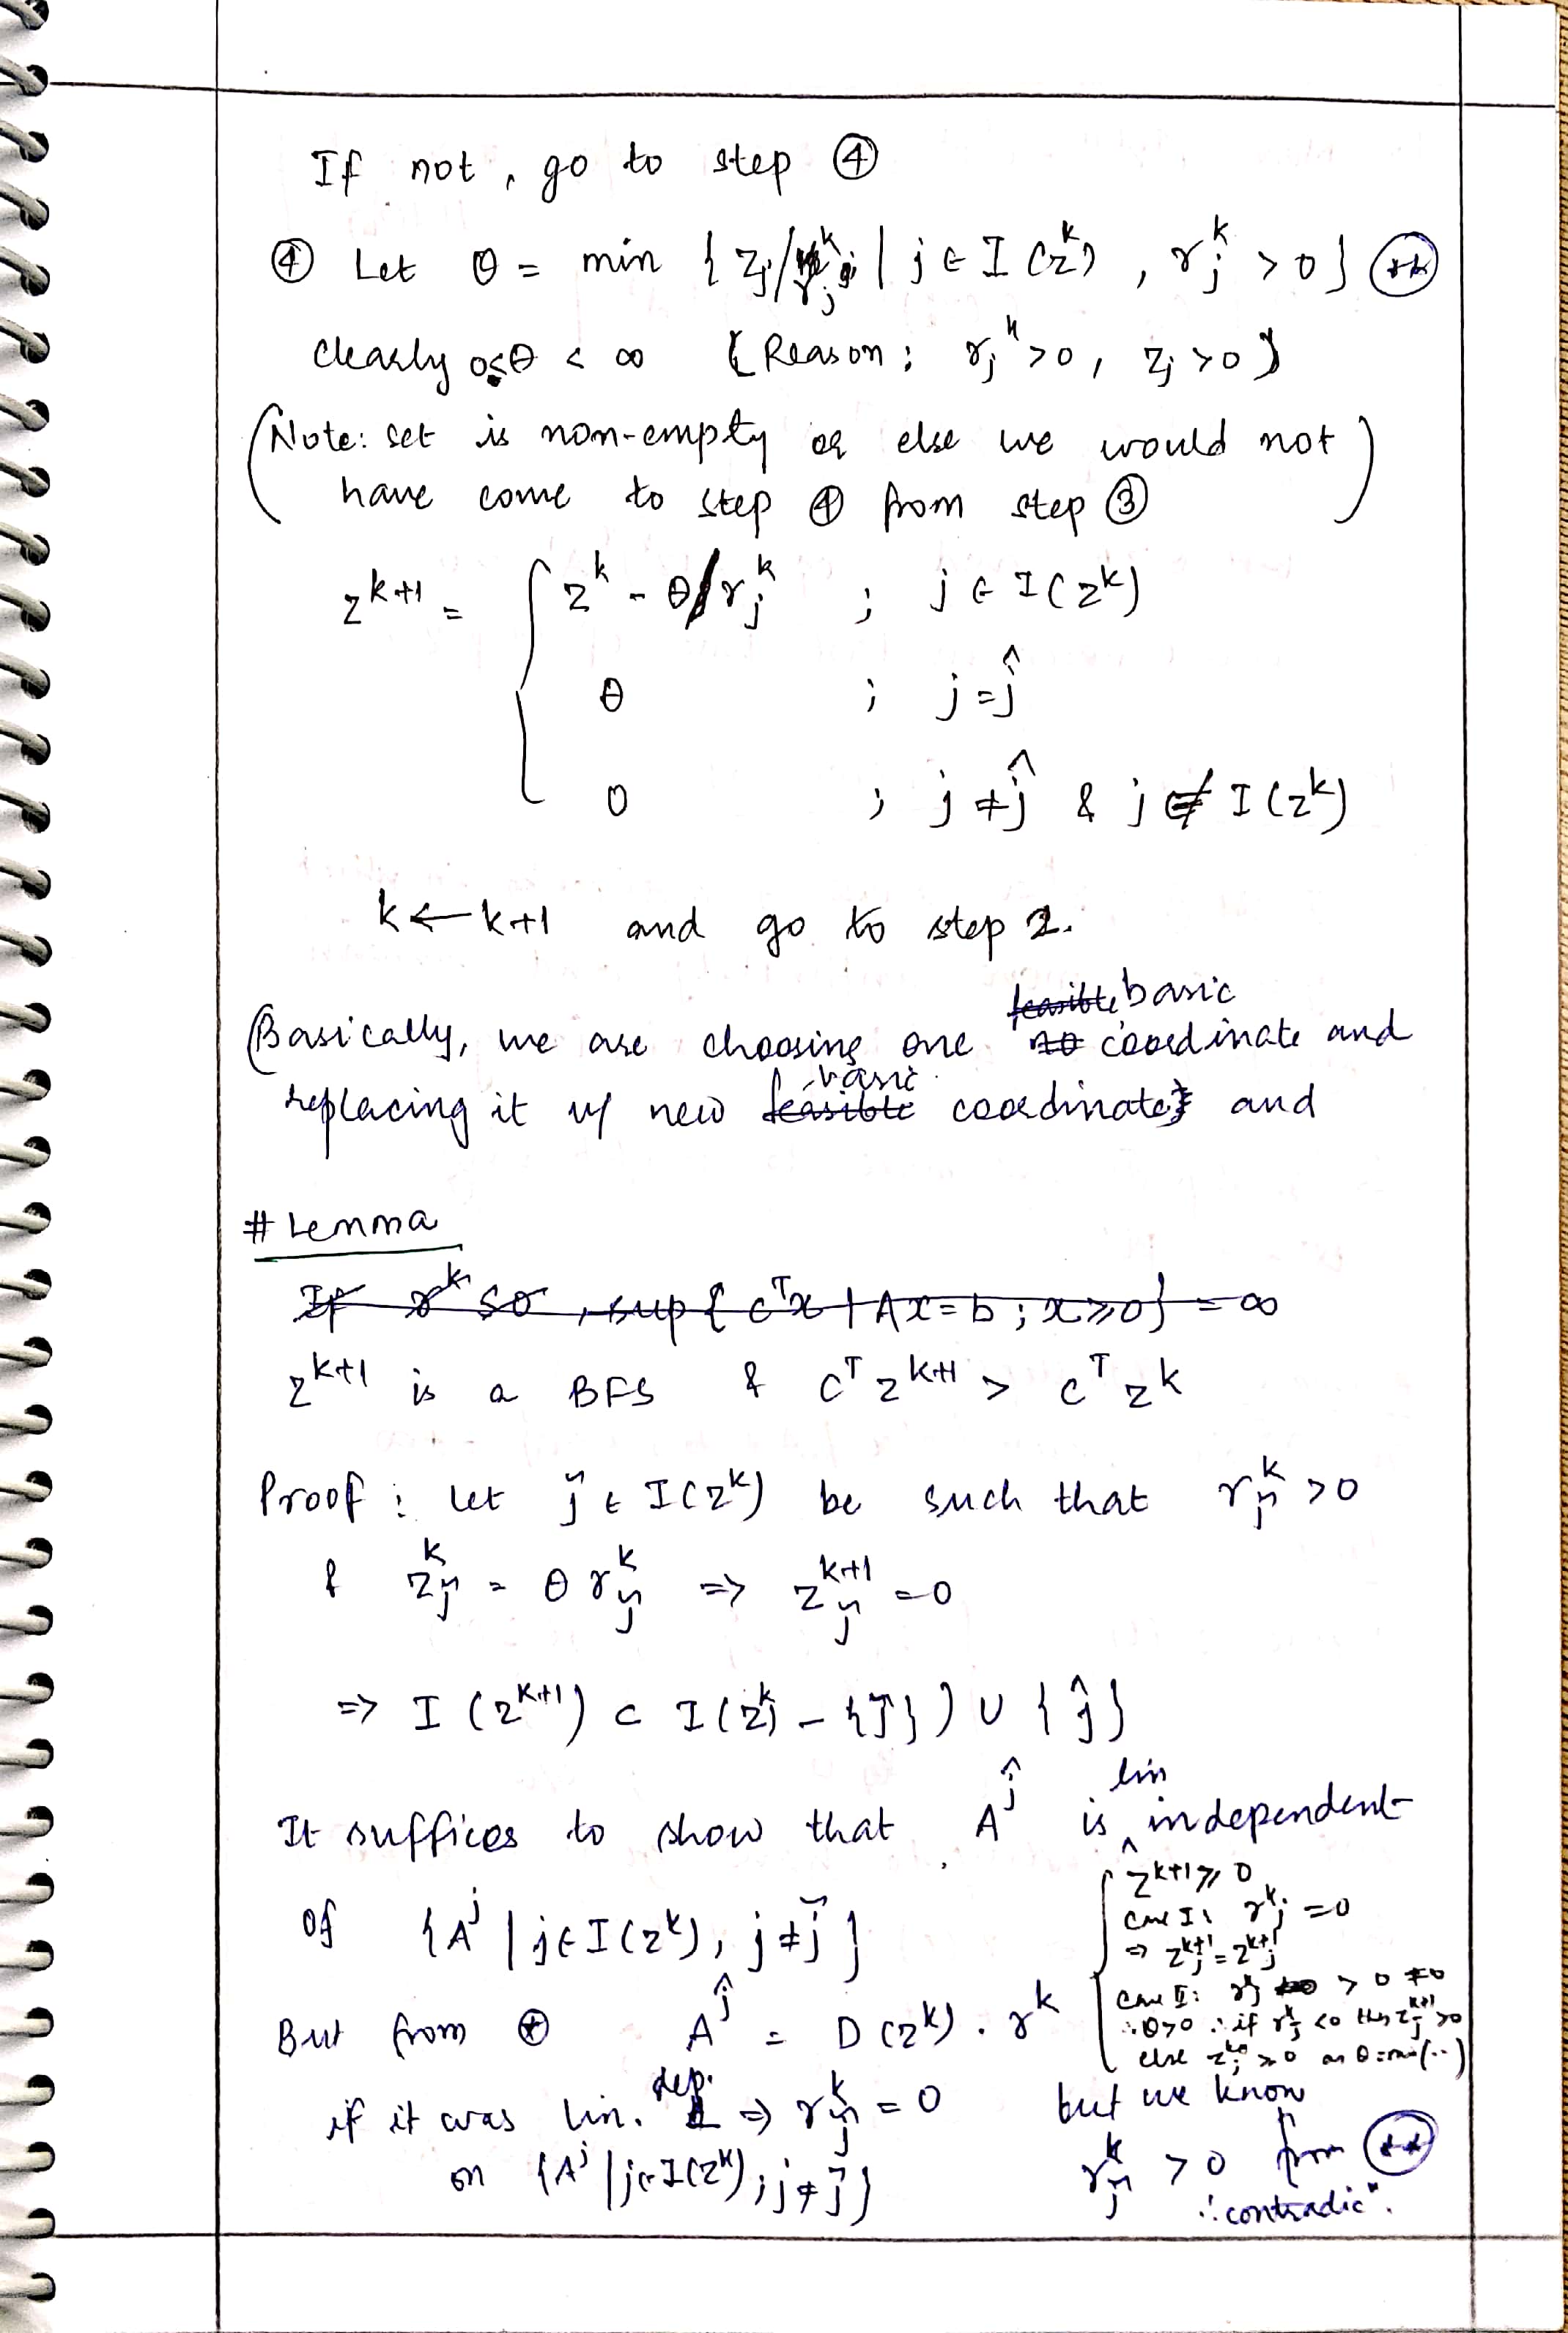 If not, go to step ④
④ Let θ = min { z_j / r_j^k | j ∈ I(z^k), r_j^k > 0 } (**)
clearly 0 ≤ θ < ∞ { Reason: r_j^k > 0, z_j > 0 }
(Note: set is non-empty or else we would not
have come to step ④ from step ③)
z^{k+1} = { z^k - θ r_j^k ; j ∈ I(z^k)
θ ; j = ĵ
0 ; j ≠ ĵ & j ∉ I(z^k)
k ← k+1 and go to step 2.
(Basically, we are choosing one basic coordinate and
replacing it w/ new basic coordinate and
# Lemma
If r^k ≤ 0, sup { c^T x | Ax = b ; x ≥ 0 } = ∞
z^{k+1} is a BFS & c^T z^{k+1} > c^T z^k
Proof : Let j̃ ∈ I(z^k) be such that r_j̃^k > 0
& z_j̃^k = θ r_j̃^k ⇒ z_j̃^{k+1} = 0
⇒ I(z^{k+1}) ⊂ I(z^k) - {j̃}) ∪ {ĵ}
It suffices to show that A^ĵ is lin independent
of {A^j | j ∈ I(z^k), j ≠ j̃}
z^{k+1} ≥ 0
Case I: r_j^k = 0
⇒ z_j^{k+1} = z_j^{k+1}
Case II: r_j > 0 ≠ 0
∵ θ > 0 ∴ if r_j^k < 0 then z_j^{k+1} > 0
else z_j^{k+1} ≥ 0 as θ = min{..}
But from ⊛ A^ĵ = D(z^k) . r^k
if it was lin. dep. ⇒ r_j̃^k = 0 but we know
on {A^j | j ∈ I(z^k) ; j ≠ j̃} r_j̃^k > 0 from (**)
∴ contradic^n.